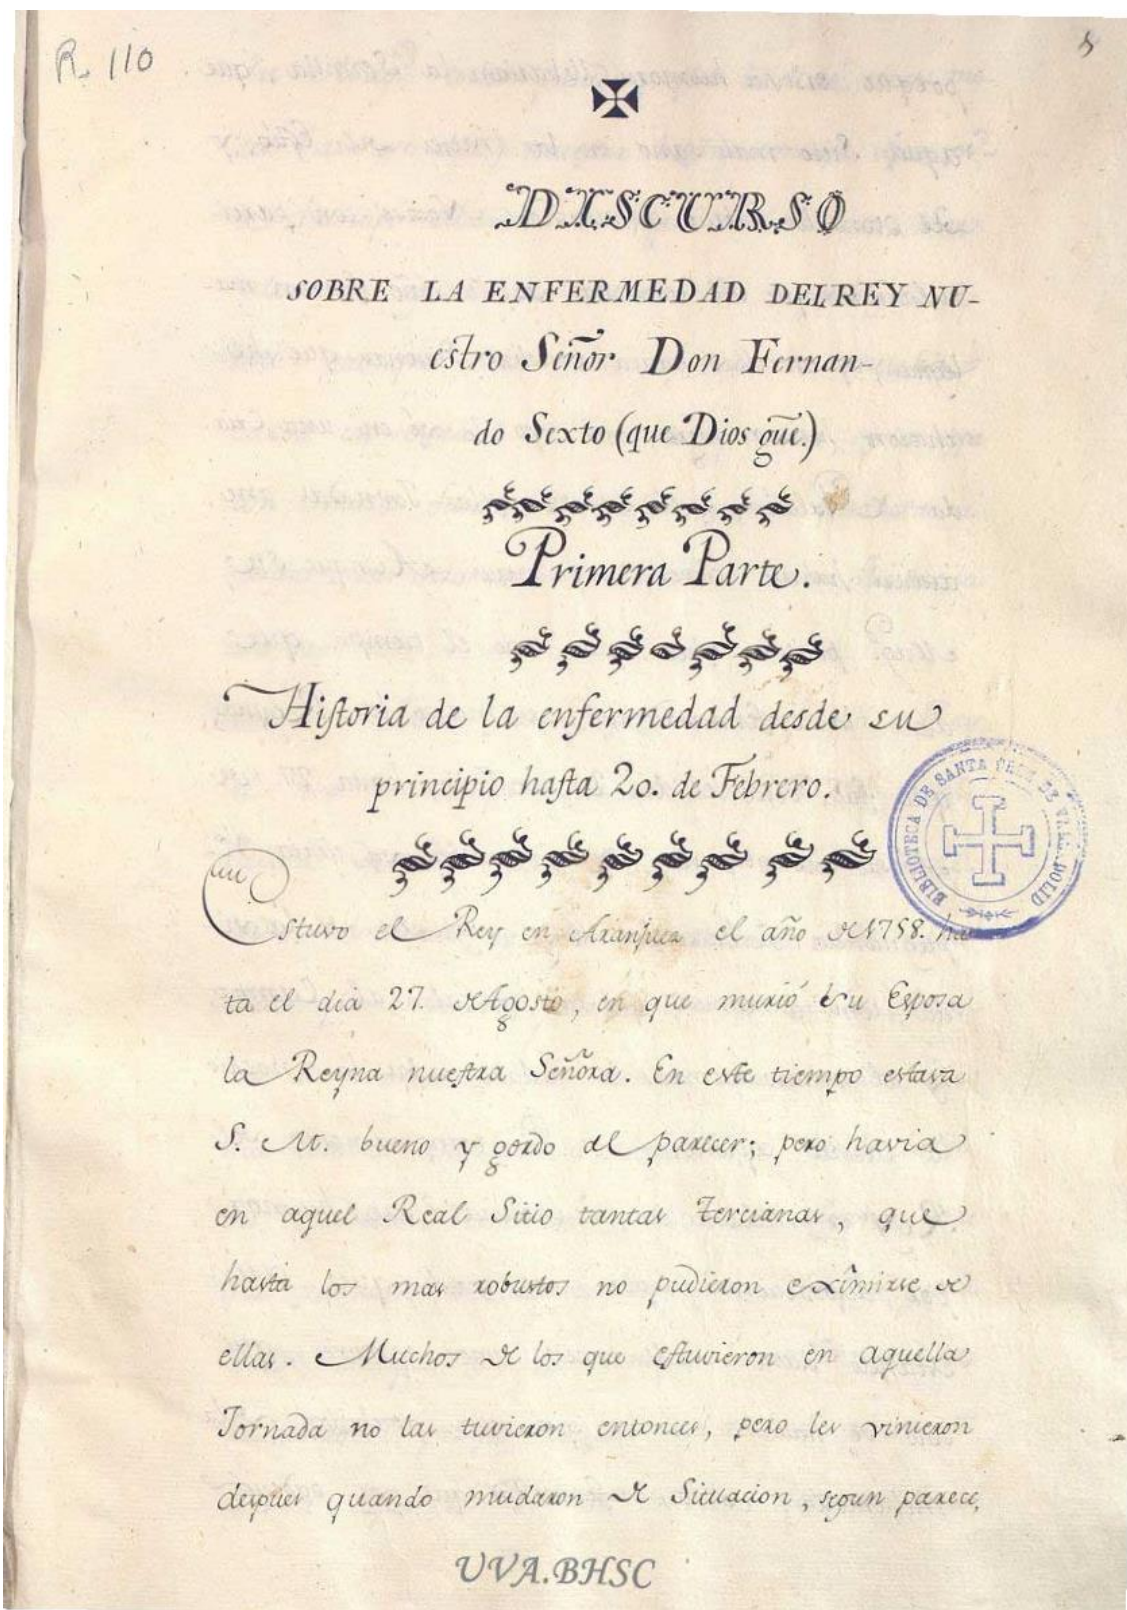 R. 110
DISCURSO
SOBRE LA ENFERMEDAD DEL REY NU-
estro Señor Don Fernan-
do Sexto (que Dios gūe.)
Primera Parte.
Historia de la enfermedad desde su
principio hasta 20. de Febrero.
BIBLIOTECA DE SANTA CRUZ DE VALLADOLID
Estuvo el Rey en Aranjuez el año de 1758. has
ta el dia 27. de Agosto, en que murió su Esposa
la Reyna nuestra Señora. En este tiempo estava
S. M. bueno y gordo al parecer; pero havia
en aquel Real Sitio tantas tercianas, que
hasta los mas robustos no pudieron eximirse de
ellas. Muchos de los que estuvieron en aquella
Jornada no las tuvieron entonces, pero les vinieron
despues quando mudaron de Situacion, segun parece,
UVA.BHSC